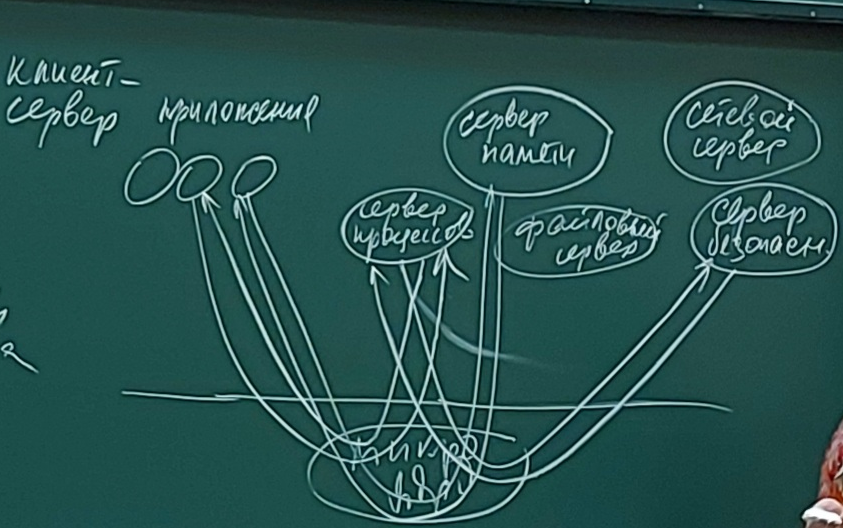 клиент-
сервер
приложения
сервер
памяти
сетевой
сервер
сервер
процессов
файловый
сервер
сервер
безопасн.
микро
ядро